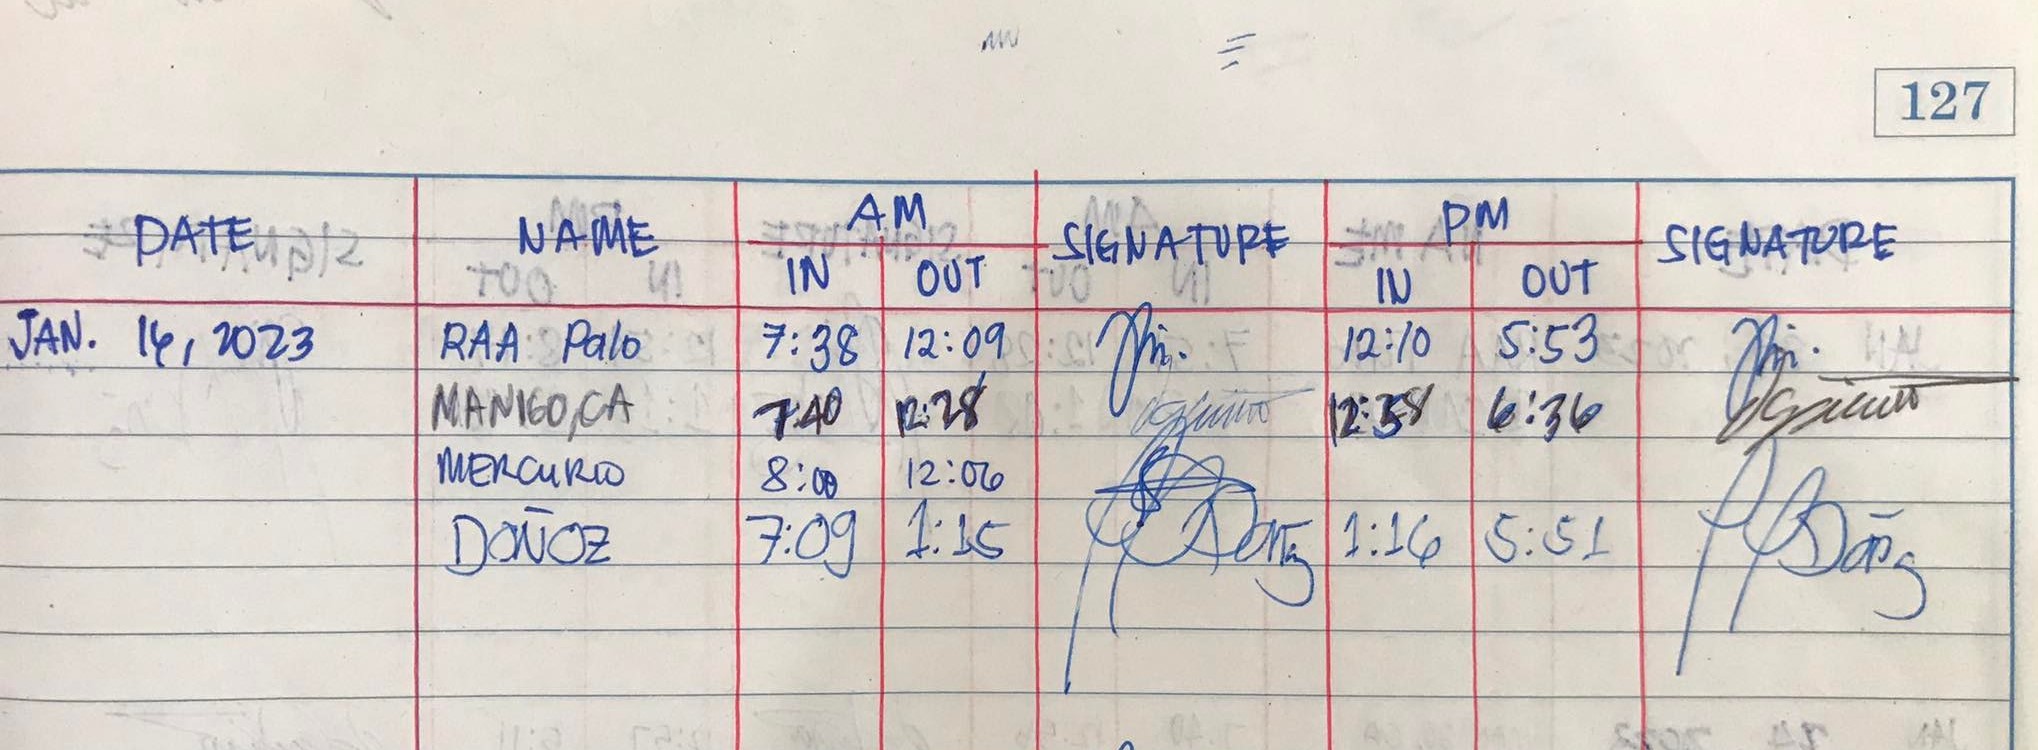 127
DATE NAME AM SIGNATURE PM SIGNATURE
IN OUT IN OUT
JAN. 16, 2023 RAA Palo 7:38 12:09 12:10 5:53
MANIGO, CA 7:40 12:28 12:38 6:36
MERCURIO 8:00 12:06
DOÑOZ 7:09 1:15 1:16 5:51